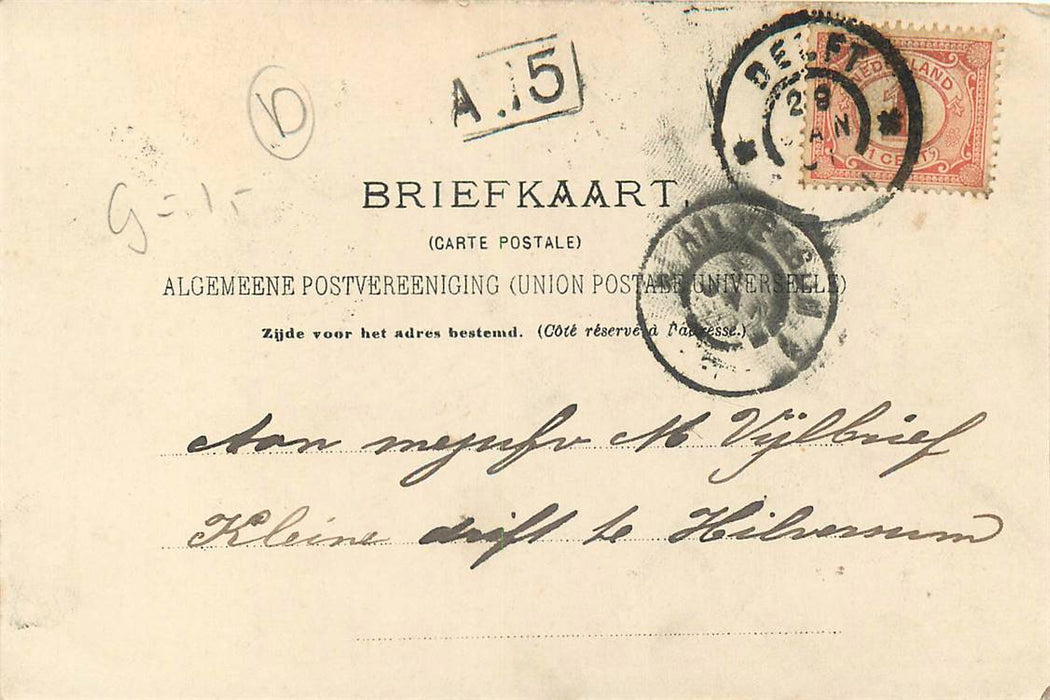 A.15
DELFT
28
JAN
NEDERLAND
1 CENT
D
G = 1,-
BRIEFKAART.
(CARTE POSTALE)
ALGEMEENE POSTVEREENIGING (UNION POSTALE UNIVERSELLE)
HILVERSUM
Zijde voor het adres bestemd. (Côté réservé à l'adresse.)
Aan mejufvr M Vijlbrief
Kleine drift te Hilversum